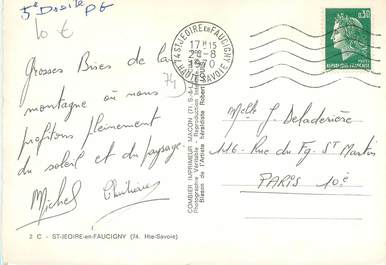 5e Droite PG
10 €
74 ST-JEOIRE-EN-FAUCIGNY
17H15
28-8
1970
HAUTE-SAVOIE
0,30
REPUBLIQUE FRANÇAISE
Grosses Bises de la
montagne où nous
profitons pleinement
du soleil et du paysage.
Michel
74
COMBIER IMPRIMEUR MACON (71 S.-&-L.)
Photographie Véritable - Reproduction
Blason de l'Artiste Héraldiste Robert
Melle J. Deladerière
116 - Rue du Fg. ST Martin
PARIS 10e
2 C - ST-JEOIRE-en-FAUCIGNY (74. Hte-Savoie)